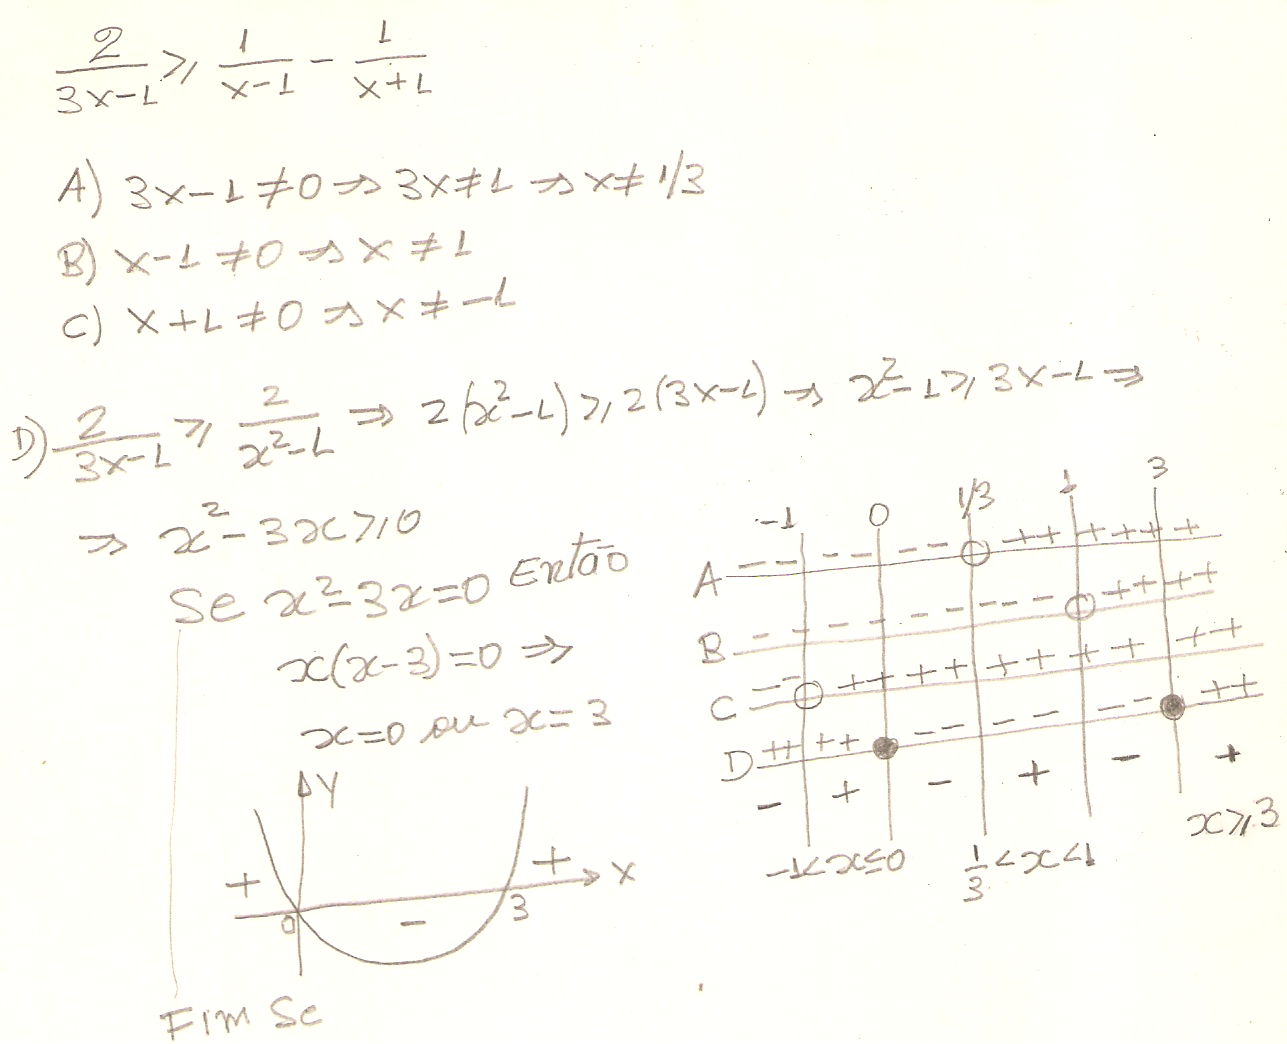 2/(3x-1) ⩾ 1/(x-1) - 1/(x+1)
A) 3x-1≠0 ⇒ 3x≠1 ⇒ x≠1/3
B) x-1≠0 ⇒ x≠1
C) x+1≠0 ⇒ x≠-1
D) 2/(3x-1) ⩾ 2/(x²-1) ⇒ 2(x²-1)⩾2(3x-1) ⇒ x²-1⩾3x-1 ⇒
⇒ x²-3x⩾0
Se x²-3x=0 Então
x(x-3)=0 ⇒
x=0 ou x=3
Y
+ + X
0 - 3
Fim Se
-1 0 1/3 1 3
A -- -- -- ++ ++ ++ +
B - - - - - - - - - - ++ + ++
C -- ++ ++ ++ + + + ++
D ++ ++ -- - - - -- ++
- + - + - +
-1<x≤0 1/3<x<1 x⩾3